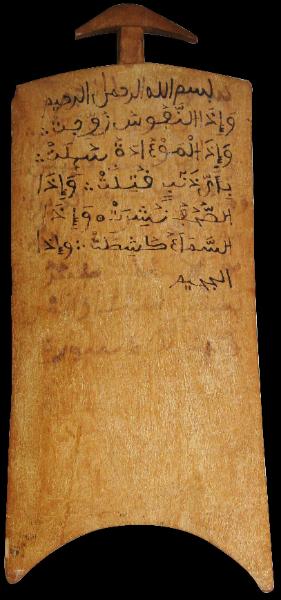 بسم الله الرحمن الرحيم
وَإِذَا النُّفُوسُ زُوِّجَتْ
وَإِذَا الْمَوْءُادَةُ سُيِلَتْ
بِأَيِّ ذَنْبٍ قُتِلَتْ وَإِذَا
الصُّحُفُ نُشِرَتْ وَإِذَا
السَّمَاءُ كَاشِطَتْ وَإِذَا
الجحيم